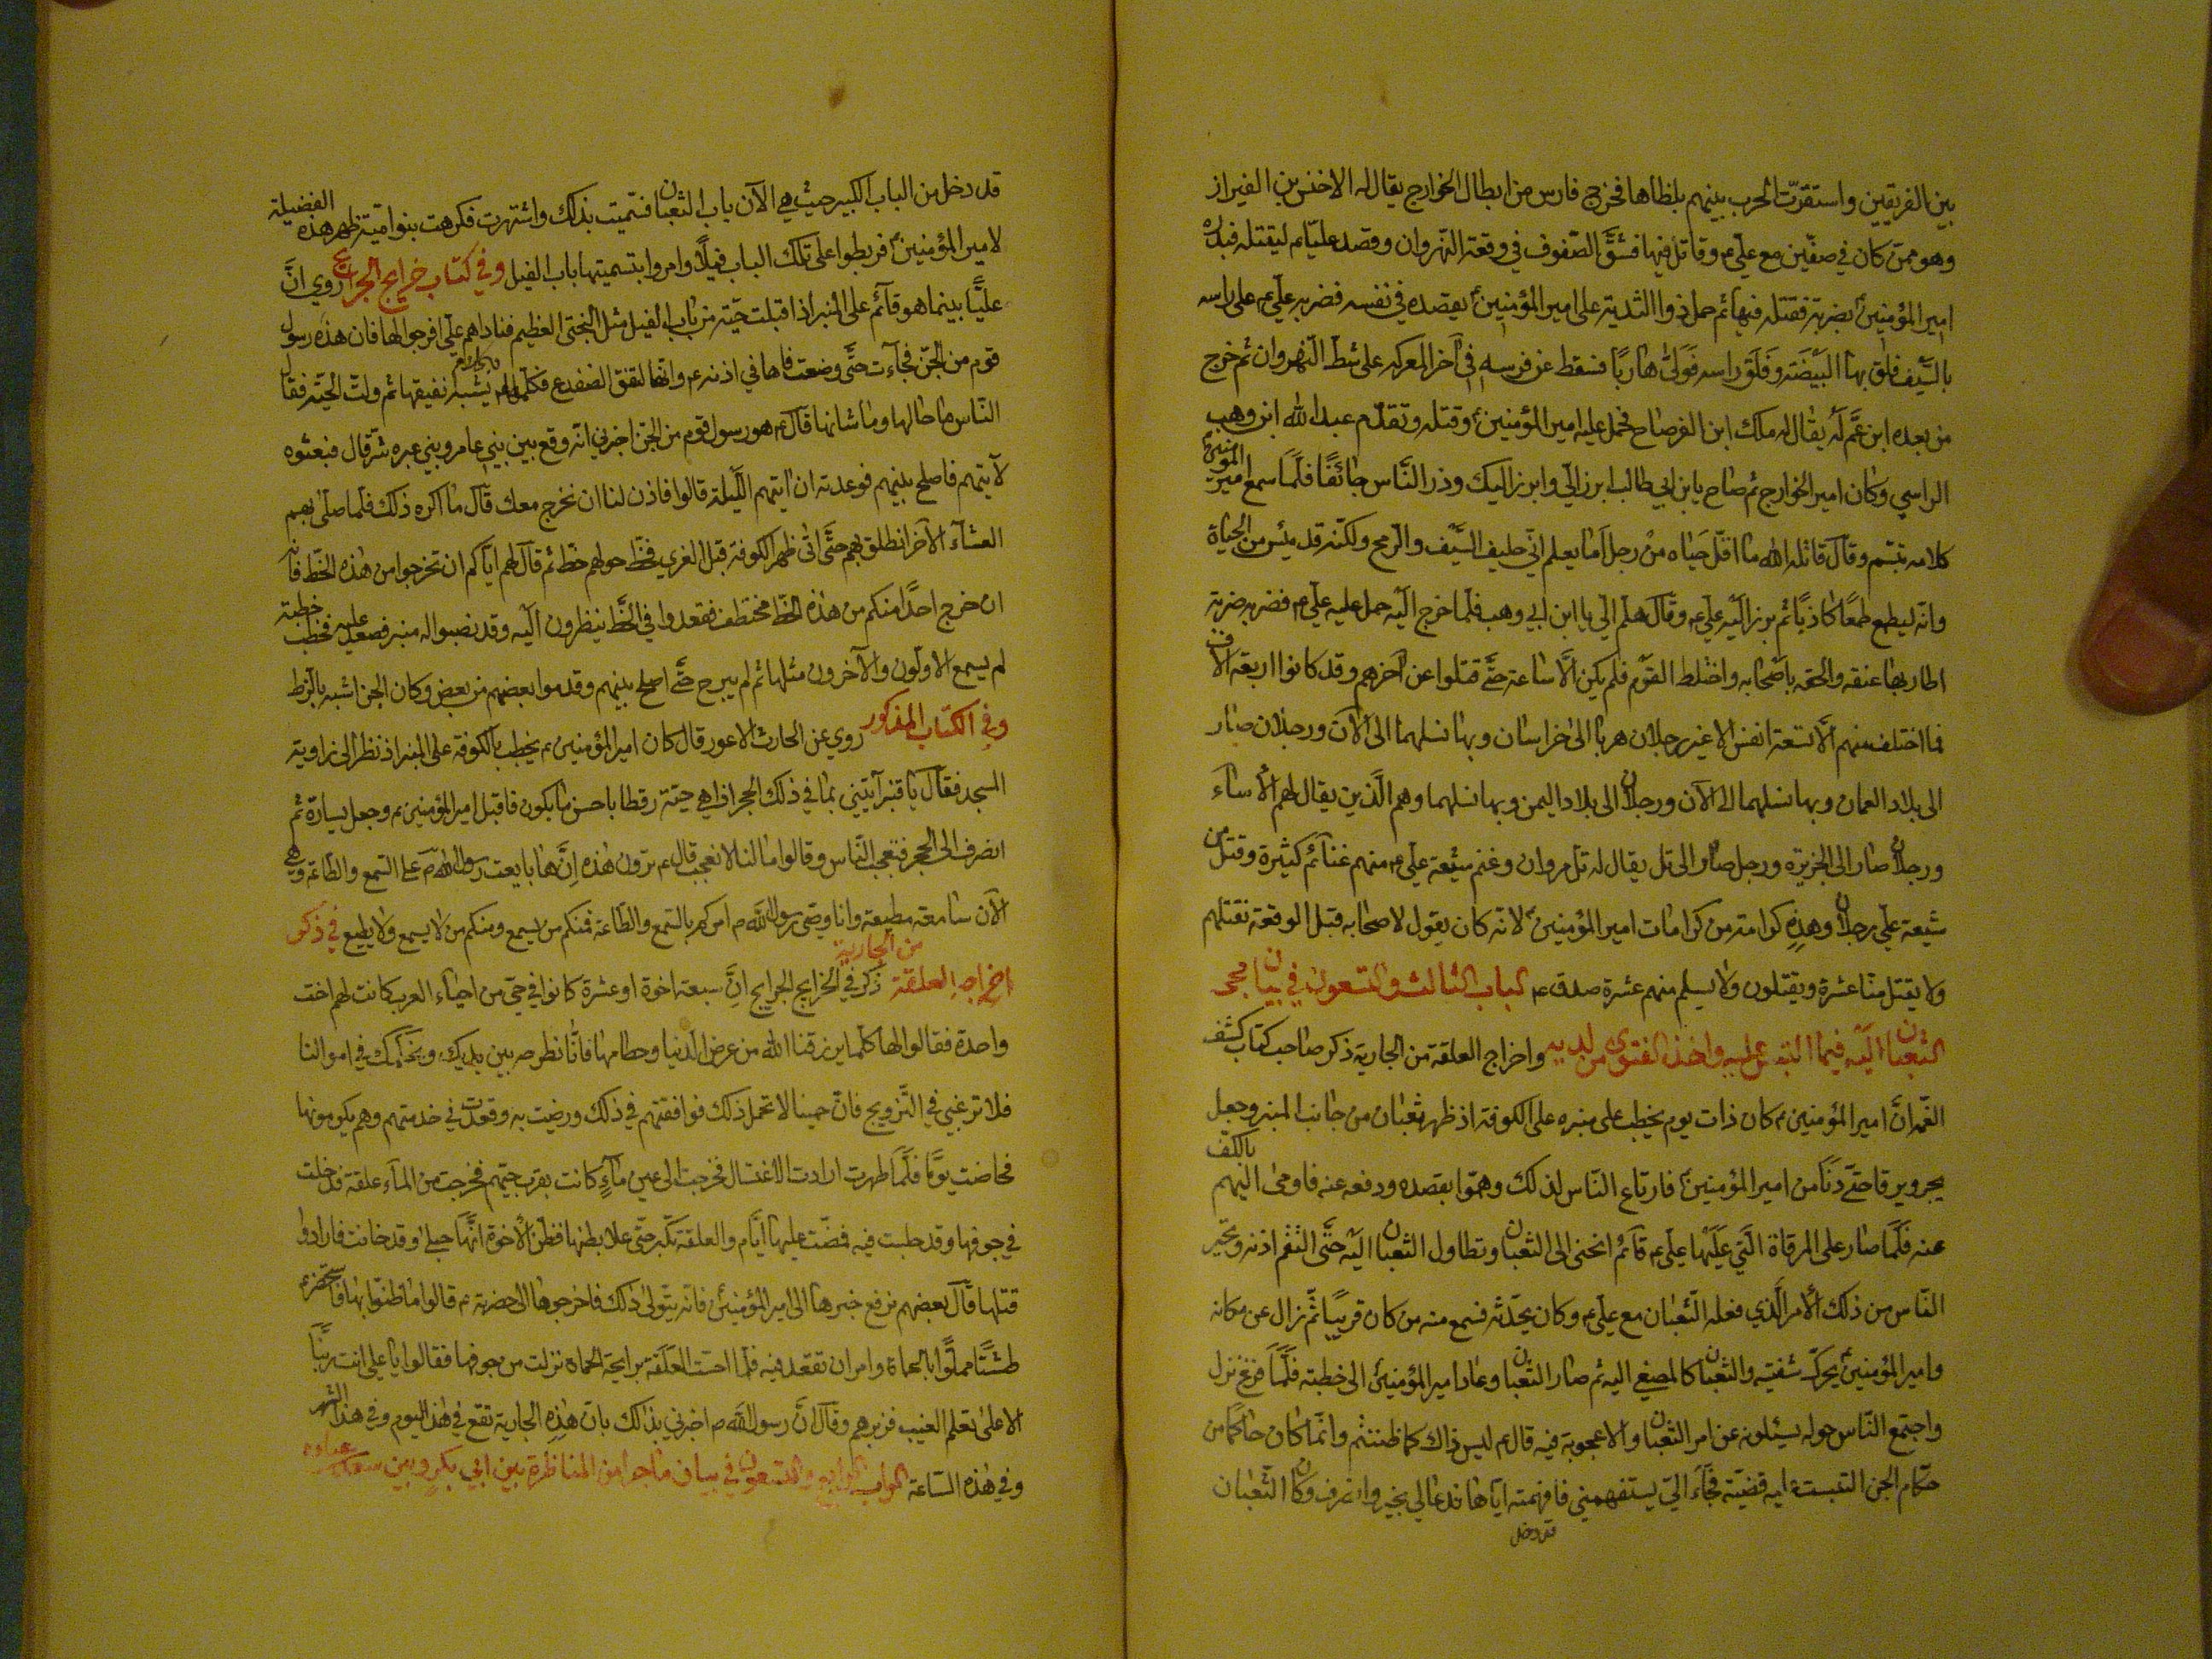 بين الفريقين واستقرّت الحرب بينهم بلظاها فخرج فارس من ابطال الخوارج يقال له الاخنس بن الفيزاز
وهو ممن كان في صفّين مع علي ع وقاتل فيها فشقّ الصّفوف في وقعة النّهروان وقصد عليّا ع ليقتله فبدره
امير المؤمنين ع بضربة فقتله فيها ثم حمل ذوا الثدية على امير المؤمنين ع بقصده في نفسه فضربه علي ع على راسه
بالسّيف فلق بها البيضة وفلق راسه فولّى هاربًا فسقط عن فرسه في آخر المعركه على شطّ النّهروان ثم خرج
من بعده ابن عمّ له يقال له ملك ابن الفرصاح فحمل عليه امير المؤمنين ع وقتله وتقدّم عبد الله ابن وهب
الراسبي وكان امير الخوارج ثم صاح يا بن ابي طالب ابرز الّي وابرز اليك وذر النّاس جانبًا فلمّا سمع امير المؤمنين ع
كلامه تبسّم وقال قاتله الله ما اقلّ حياه من رجل اما يعلم انّي حليف السّيف والرّمح ولكنّه قد يئس من الحياة
وانّه ليطمع طمعًا كاذبًا ثم برز اليه علي ع وقال هلّم الّي يا ابن ابي وهب فلما خرج اليه حمل عليه علي ع فضربه ضربة
اطار بها عنقه والحقه باصحابه واختلط القوم فلم يكن الّا ساعة حتّى قتلوا عن آخرهم وقد كانوا اربعة الاف
فما اختلف منهم الّا تسعة انفس لا غير رجلان هربا الى خراسان وبها نسلهما الى الآن ورجلان صار
الى بلاد العمان وبها نسلهما الى الآن ورجلان الى بلاد اليمن وبها نسلهما وهم الّذين يقال لهم الأساء
ورجلان صار الى الجزيره ورجل صار الى تل يقال له تل مروان وغنم شيعة علي ع منهم غنائم كثيرة وقتل من
شيعة علي رجلان وهذه كرامة من كرامات امير المؤمنين ع لانّه كان يقول لاصحابه قبل الوقعة نقتلهم
ولا يقتل منّا عشرة ويقتلون ولا يسلم منهم عشرة صدق ع الباب الثالث والتسعون في بيان مجى
الثعبان اليه فيما التبس عليه واخذ الفتوى من لديه واخراج العلقة من الجارية ذكر صاحب كتاب كشف
الغمه انّ امير المؤمنين ع كان ذات يوم يخطب على منبره على الكوفة اذ ظهر ثعبان من جانب المنبر وجعل
يجر ويرقا حتّى دنا من امير المؤمنين ع فارتاع النّاس لذلك وهمّوا بقصده ودفعه عنه فاومى اليهم بالكف
عنه فلمّا صار على المرقاة الّتي عليها علي ع قائم انحنى الى الثعبان وتطاول الثعبان اليه حتّى التقم اذنه وتحير
النّاس من ذلك الأمر الّذي فعله الثّعبان مع علي ع وكان يحدّثه فسمع منه من كان قريبًا ثمّ زال عن مكانه
وامير المؤمنين ع يحرك شفتيه والثعبان كالمصغي اليه ثم صار الثعبان وعاد امير المؤمنين ع الى خطبته فلمّا فرغ نزل
واجتمع النّاس حوله يسئلونه عن امر الثعبان والاعجوبة فيه قال ع ليس ذاك كما ظننتم وانّما كان حاكما من
حكام الجن التبست عليه قضيّة فجآء الّي يستفهمني فافهمته ايّاها فدعا لي بخير وانصرف وكان الثّعبان
قد دخل
قد دخل من الباب الكبير حيث هي الآن باب الثعبان فسميت بذلك واشتهرت فكرهت بنوا اميّة ظهر هذه الفضيلة
لامير المؤمنين ع فربطوا على تلك الباب فيلًا وامروا بتسميتها باب الفيل وفي كتاب خرايج الجرايح روي انّ
عليًّا بينما هو قائم على المنبر اذ اقبلت حيّة من باب الفيل مثل البختي العظيم فناداهم علي افرجوا لها فان هذه رسول
قوم من الجنّ فجآءت حتّى وضعت فاها في اذنه ع وانّها لتنقّ الضفدع فكلمها بكلام يشبه نقيقها ثم ولّت الحيّة فقال
النّاس ما حالها وما شانها قال ع هو رسول قوم من الجنّ اخبرني انّه وقع بين بني عامر وبني عبره شرّ قال فبعثوه
لآتيهم فاصلح بينهم فوعدته ان اتيهم اللّيلة قالوا فاذن لنا ان نخرج معك قال ما اكره ذلك فلما صلى بهم
العشآء الآخر انطلق بهم حتّى اتى ظهر الكوفة قبل الغري فخطّ حولهم خطّ ثم قال لهم ايّاكم ان تخرجوا من هذه الخط فانّ
ان خرج احدًا منكم من هذه الخط مختطف فقعدوا في الخّط ينظرون اليه وقد نصبوا له منبر فصعد عليه فخطب خطبة
لم يسمع الاولون والآخرون مثلها ثم لم يبرح حتّى اصلح بينهم وقدموا بعضهم من بعض وكان الجن اشبه بالزط
وفي الكتاب المذكور روي عن الحارث الاعور قال كان امير المؤمنين ع يخطب بالكوفة على المنبر اذ نظر الى زاوية
المسجد فقال يا قنبر آتيني بما في ذلك الحجر اذا هي حيّة رقطا باحسن ما يكون فاقبل امير المؤمنين ع وجعل يسارّه ثم
انصرف الى الحجر فتعجب النّاس وقالوا ما لنا لا نعجب قال ع ترون هذه انّها بايعت رسول الله ص على السّمع والطّاعة وهي
الآن سامعة مطيعة وانا وصي رسول الله ص امركم بالسّمع والطّاعة فمنكم من يسمع ومنكم من لا يسمع ولا يطيع في ذكر
اخراجه العلقة من الجارية ذكر في الخرايج الجرايح انّ سبعة اخوة او عشرة كانوا في حيّ من احياء العرب كانت لهم اخت
واحدة فقالوا لها كلما يرزقنا الله من عرض الدنيا وحطامها فانّا نطرحه بين يديك ونحكمك في اموالنا
فلا ترغبي في التّزويج فانّ حمينا لا تحمل ذلك فوافقتهم في ذلك ورضيت به وقعدت في خدمتهم وهم يكرمونها
فحاضت يومًا فلمّا طهرت ارادت الاغتسال فخرجت الى عين مآءٍ كانت بقرب حيّهم فخرجت من المآء علقة فدخلت
في جوفها وقد جلست فيه فمضّت عليها ايّام والعلقة تكبر حتّى علا بطنها فظنّ الأخوة انّها حبلى وقد خانت فارادوا
قتلها قال بعضهم نرفع خبرها الى امير المؤمنين ع فانّه يتولى ذلك فاخرجوها الى حضرته ع قالوا ما ظنّوا بها فاستحضر ع
طشتًا مملوًّا بالحماة وامر ان تقعد فيه فلما احسّت العلقة برايحة الحماة نزلت من جوفها فقالوا يا علي انت ربّنا
الاعلى تعلم الغيب فزبرهم وقال انّ رسول الله ص اخبرني بذلك بانّ هذه الجارية تقع في هذا اليوم وفي هذا الشهر
وفي هذه السّاعة الباب الرابع والتسعون في بيان ما جرا من المناظرة بين ابي بكر وبين سعد عباده